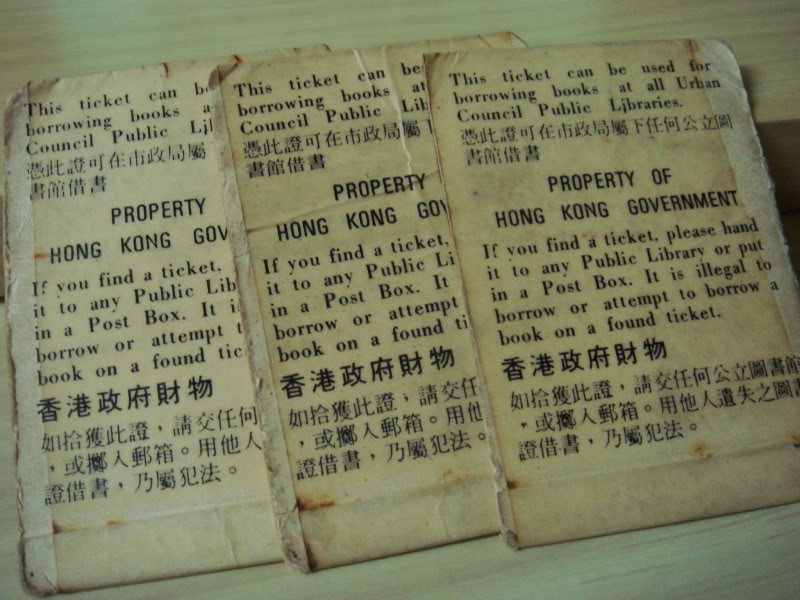 This ticket can b
borrowing books a
Council Public Li
憑此證可在市政局屬
書館借書
PROPERTY
HONG KONG GOV
If you find a ticket,
it to any Public Lib
in a Post Box. It i
borrow or attempt t
book on a found tic
香港政府財物
如拾獲此證，請交任何
，或擲入郵箱。用他人
證借書，乃屬犯法。
This ticket can be
borrowing books at
Council Public Lib
憑此證可在市政局屬下
書館借書
PROPERTY
HONG KONG GOV
If you find a ticket,
it to any Public Li
in a Post Box. It
borrow or attempt
book on a found ti
香港政府財物
如拾獲此證，請交任何
，或擲入郵箱。用他
證借書，乃屬犯法。
This ticket can be used for
borrowing books at all Urban
Council Public Libraries.
憑此證可在市政局屬下任何公立圖
書館借書
PROPERTY OF
HONG KONG GOVERNMENT
If you find a ticket, please hand
it to any Public Library or put
in a Post Box. It is illegal to
borrow or attempt to borrow a
book on a found ticket.
香港政府財物
如拾獲此證，請交任何公立圖書館
，或擲入郵箱。用他人遺失之圖書
證借書，乃屬犯法。